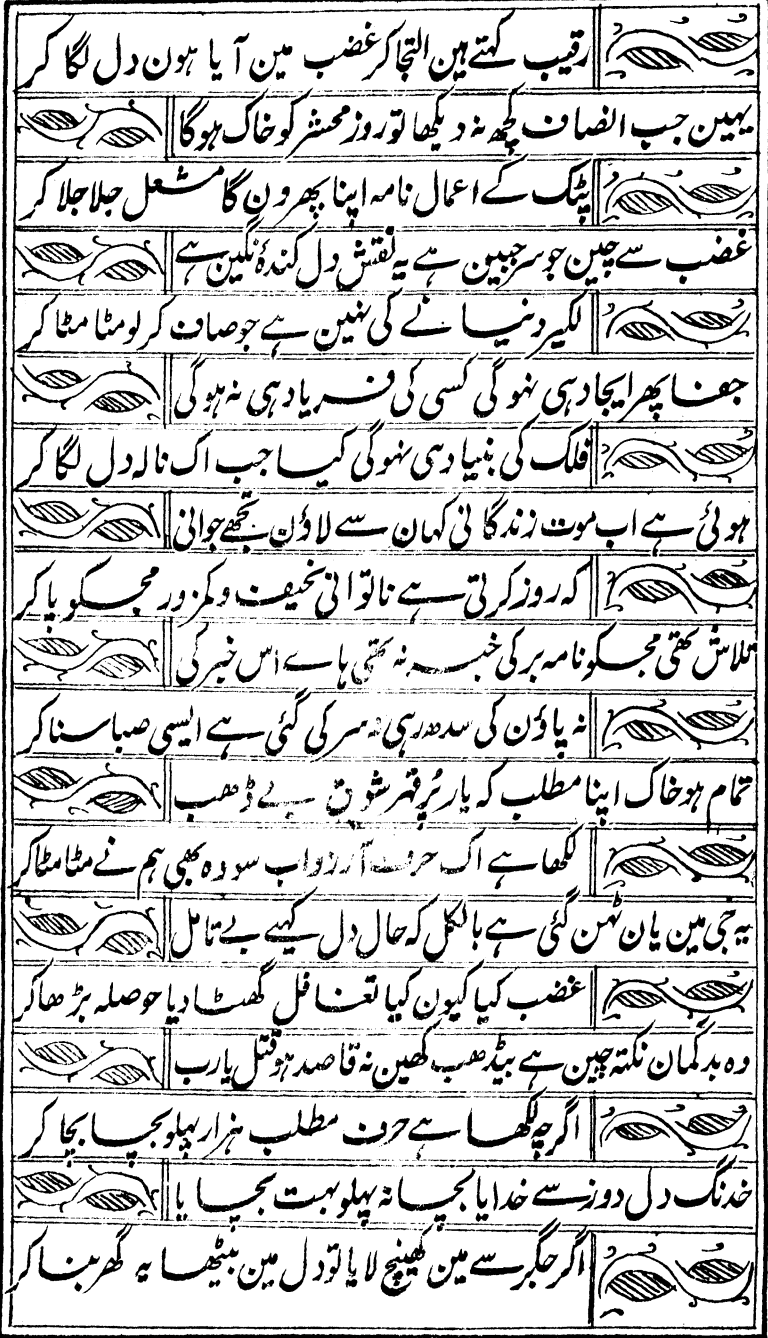 رقیب کہتے ہین التجا کر غضب مین آیا ہون دل لگا کر
یہین جب انصاف کچھ نہ دیکھا تو روز محشر کو خاک ہوگا
پٹک کے اعمال نامہ اپنا پھرون گا مشعل جلا جلا کر
غضب سے چین جو سر جبین ہے یہ نقش دل کندۂ نگین ہے
لکیر دنیا نے کی نہین ہے جو صاف کر لو مٹا مٹا کر
جفا پھر ایجاد ہی نہوگی کسی کی فریاد ہی نہ ہوگی
فلک کی بنیاد ہی نہوگی کیا جب اک نالہ دل لگا کر
ہوئی ہے اب موت زندگانی کہان سے لاؤن تجھے جوانی
کہ روز کرتی ہے ناتوانی نحیف و کمزور مجکو پا کر
تلاش تھی مجکو نامہ بر کی خبر نہ تھی ہاے اس خبر کی
نہ پاؤن کی سدھ رہی نہ سر کی گئی ہے ایسی صبا سنا کر
تمام ہو خاک اپنا مطلب کہ یار پُر قہر شوق بے ڈھب
لکھا ہے اک حرف آرزو اب سو وہ بھی ہم نے مٹا مٹا کر
یہ جی مین یان ٹھن گئی ہے بالکل کہ حال دل کہیے بے تامل
غضب کیا کیون کیا تغافل گھٹا دیا حوصلہ بڑھا کر
وہ بدگمان نکتہ چین ہے بیڈھب کھین نہ قاصد ہو قتل یارب
اگرچہ لکھا ہے حرف مطلب ہزار پہلو بچا بچا کر
خدنگ دل دوز سے خدایا بچا نہ پہلو بہت بچایا
اگر جگر سے مین کھینچ لایا تو دل مین بیٹھا یہ گھر بنا کر